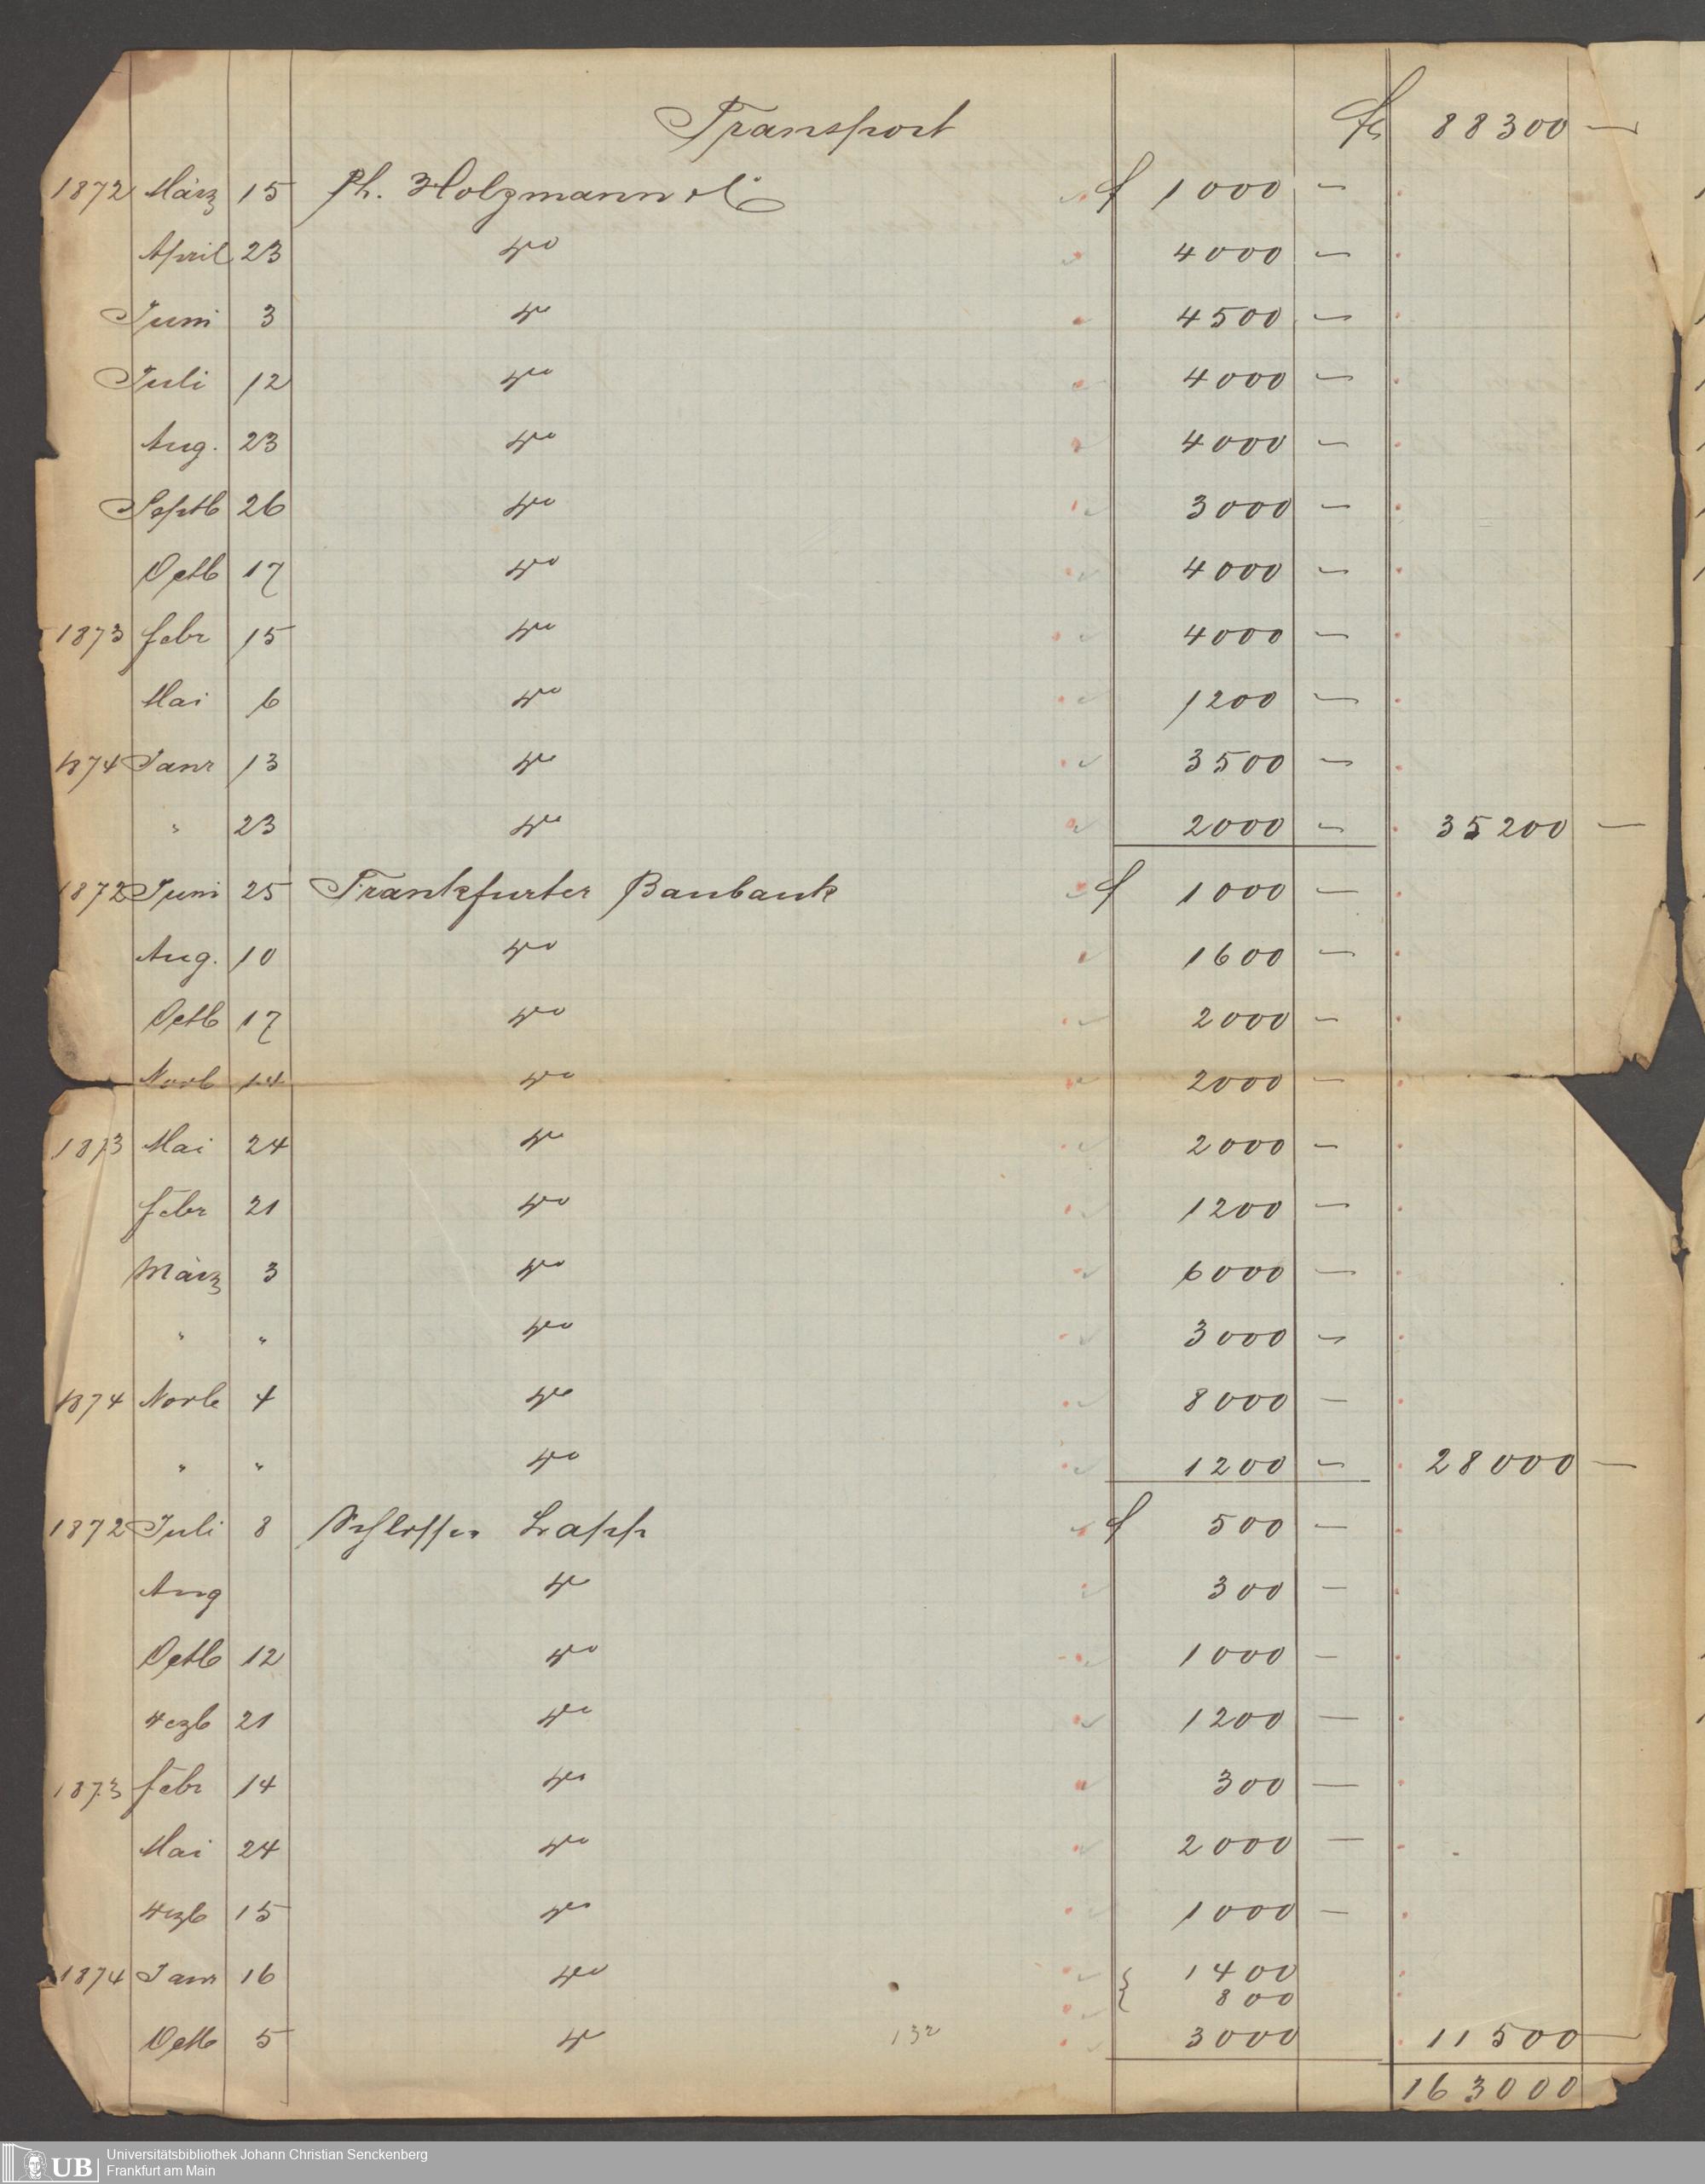 Transport f 88300 —
1872 März 15 Ph. Holzmann & Cie f 1000 —
April 23 do 4000 —
Juni 3 do 4500 —
Juli 12 do 4000 —
Aug. 23 do 4000 —
Septb 26 do 3000 —
Octb 17 do 4000 —
1873 Febr 15 do 4000 —
Mai 6 do 1200 —
1874 Janr 13 do 3500 —
" 23 do 2000 — 35200 —
1872 Juni 25 Frankfurter Baubank f 1000 —
Aug. 10 do 1600 —
Octb 17 do 2000 —
Novb 14 do 2000 —
1873 Mai 24 do 2000 —
Febr 21 do 1200 —
März 3 do 6000 —
" " do 3000 —
1874 Novb 4 do 8000 —
" " do 1200 — 28000 —
1872 Juli 8 Schlosser Lapp f 500 —
Aug do 300 —
Octb 12 do 1000 —
Dezb 21 do 1200 —
1873 Febr 14 do 300 —
Mai 24 do 2000 —
Dezb 15 do 1000 —
1874 Janr 16 do { 1400
800
Octb 5 do 132 3000 11500 —
163000
UB Universitätsbibliothek Johann Christian Senckenberg
Frankfurt am Main